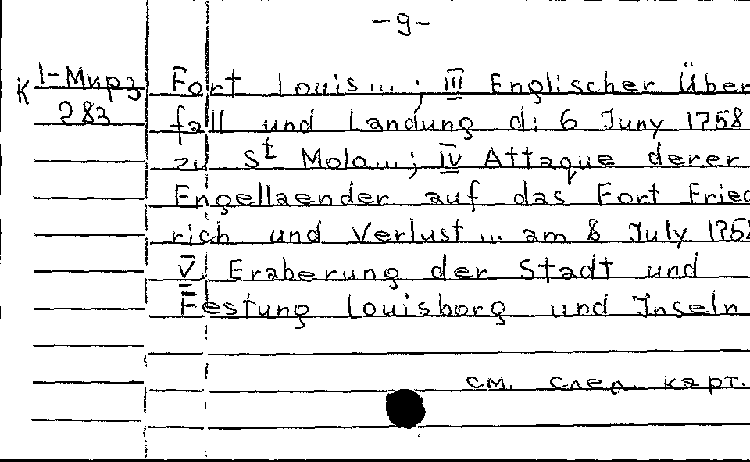 -9-
К 1-Мирз Fort Louis...; III Englischer Über
283 fall und Landung d: 6 Juny 1758
zu St Molo...; IV Attaque derer
Engellaender auf das Fort Fried
rich und Verlust ... am 8 July 1758
V Eraberung der Stadt und
Festung Louisborg und Inseln
см. след. карт.